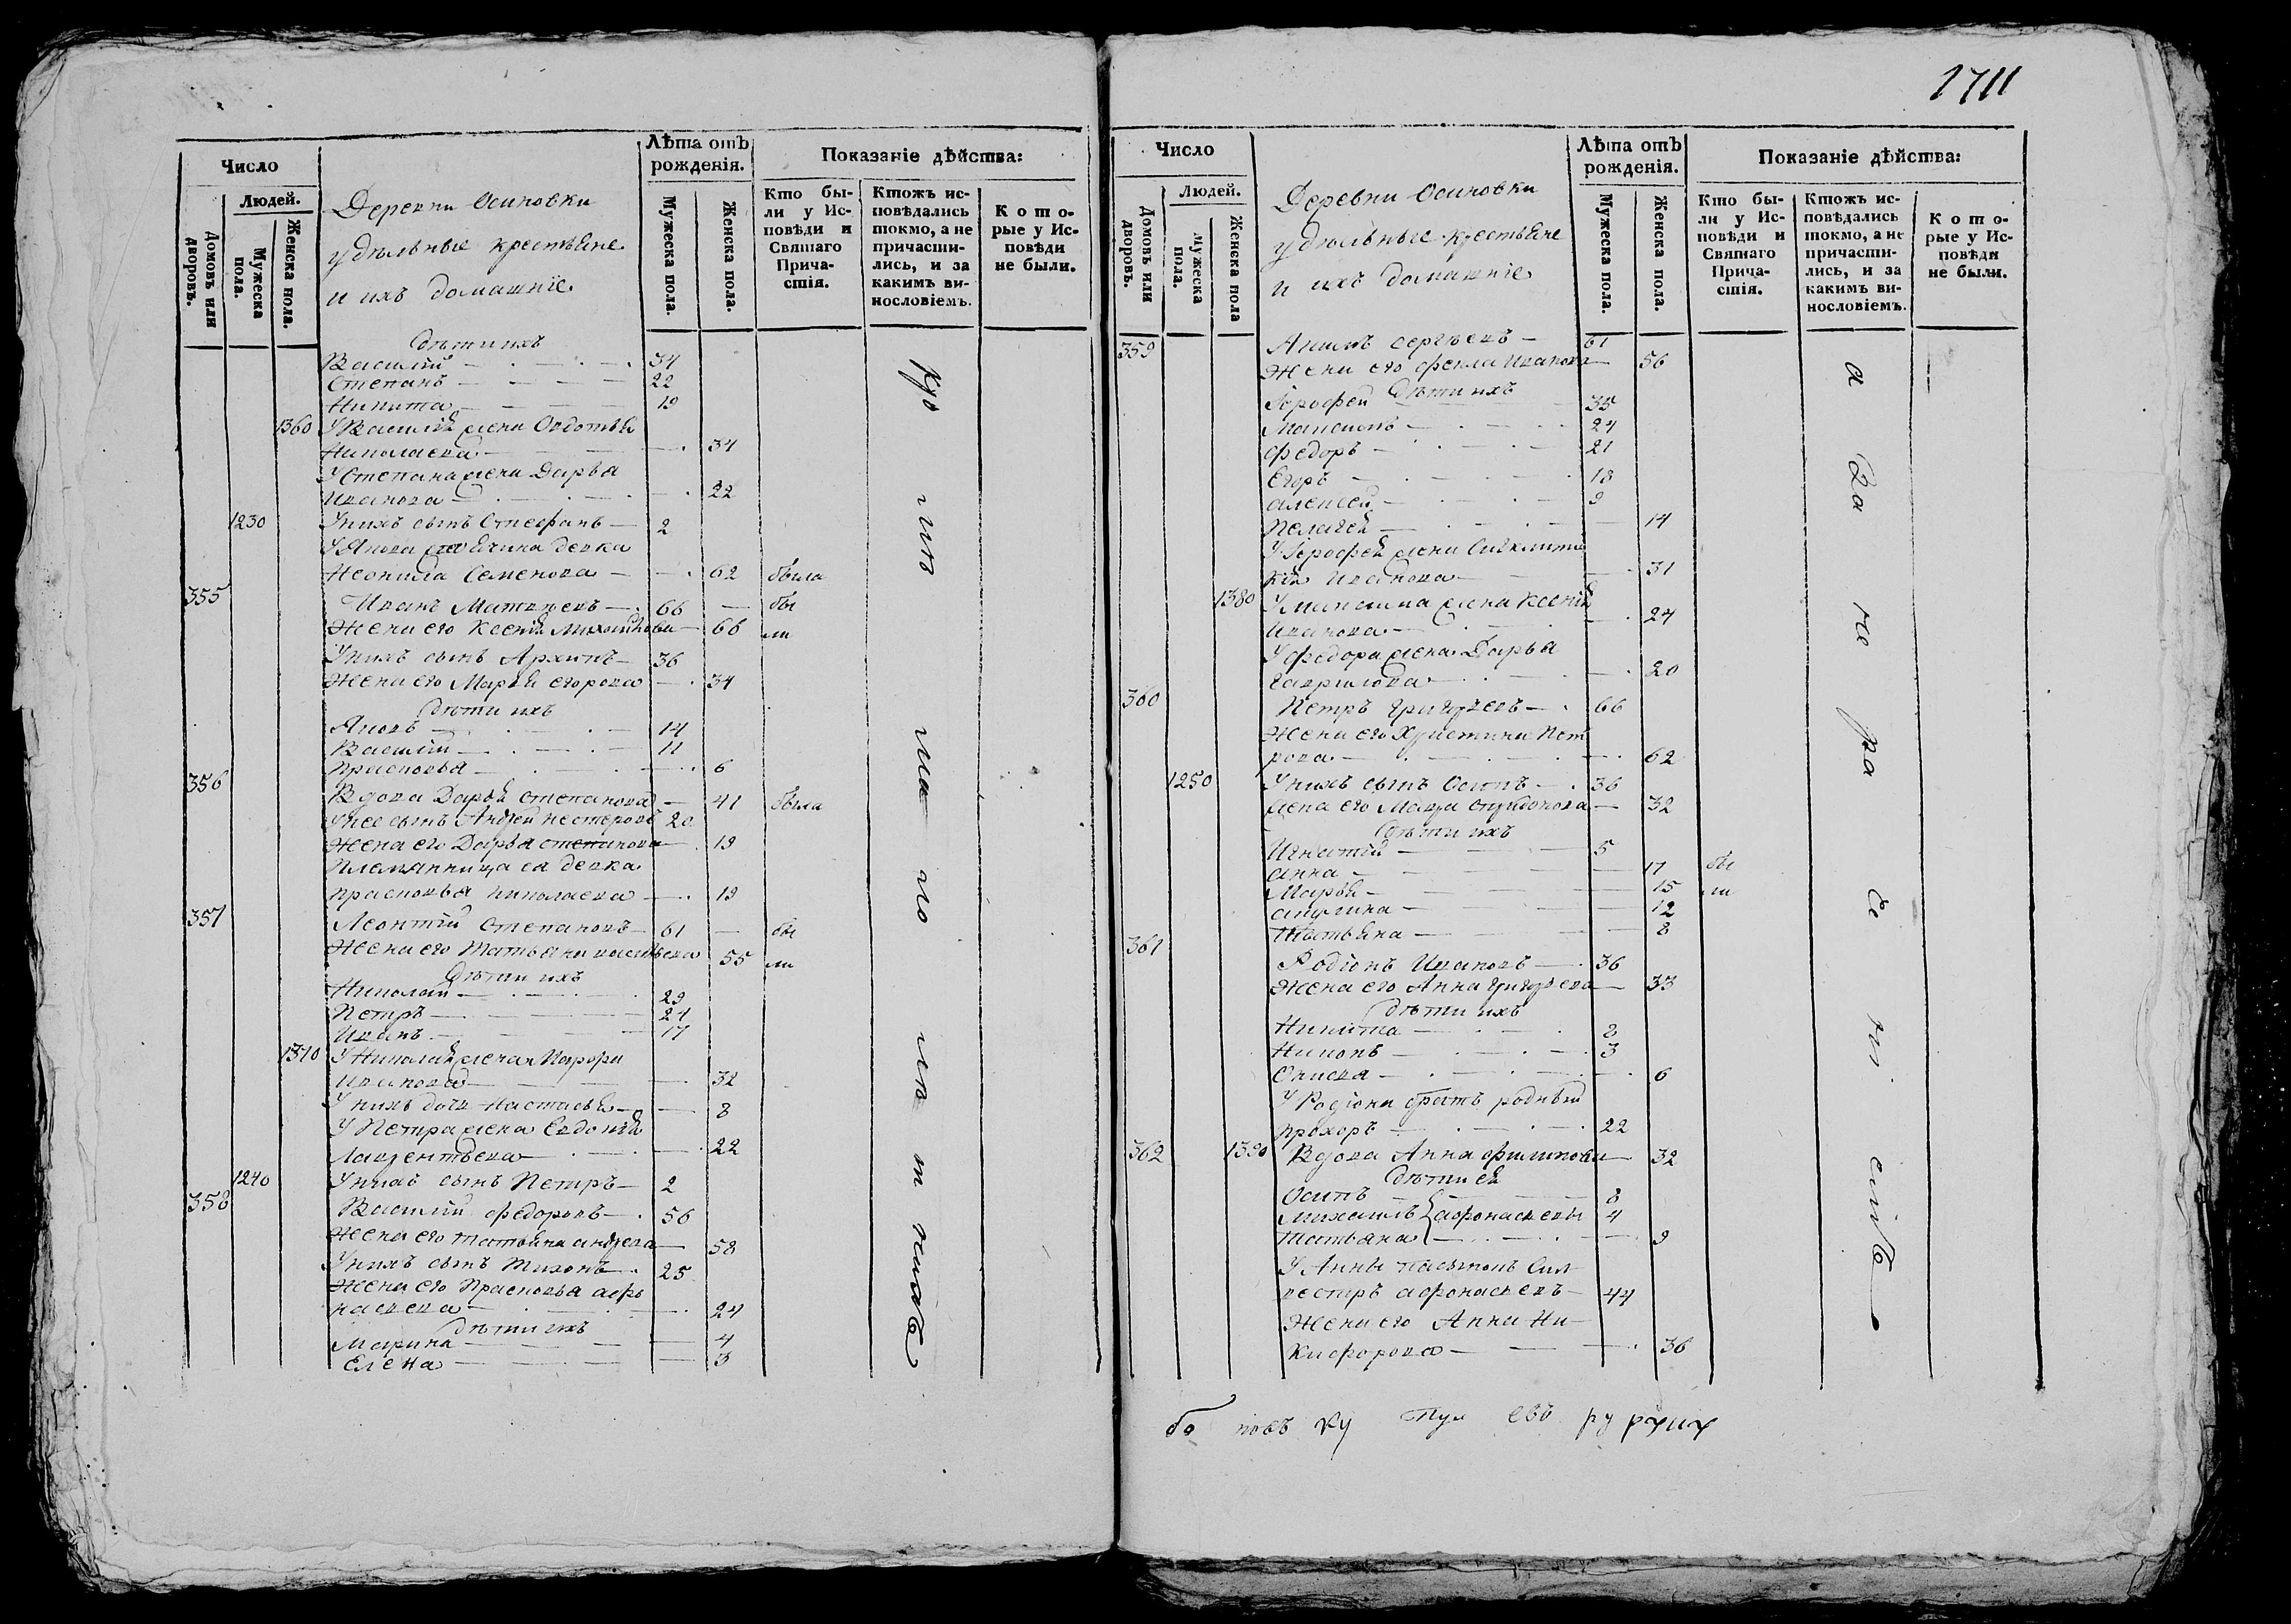 1711
Число
Лѣта отъ рожденія.
Показаніе дѣйства:
Домовъ или дворовъ.
Людей.
Мужеска пола.
Женска пола.
Деревни Осиновки
удѣльные крестьяне
и ихъ домашніе
Мужеска пола.
Женска пола.
Кто бы-
ли у Ис-
повѣди и
Святаго
Прича-
стія.
Ктожъ ис-
повѣдались
токмо, а не
причасти-
лись, и за
какимъ ви-
нословіемъ.
К о т о-
рые у Ис-
повѣди
не были.
дѣти ихъ
Василій 34
Степанъ 22
Никита 19
1360 У Василія жена Овдотья
Николаева 34
У Степана жена Дарья
Иванова 22
1230 У нихъ сынъ Стефанъ 2
У Якова девка
Неонила Семенова 62 была
355 Иванъ Матвѣевъ 66 бы
Жена его Ксенія 66 ли
У нихъ сынъ Архипъ 36
Жена его Марья Егорова 34
дѣти ихъ
Яковъ 14
Василій 11
Прасковья 6
356 Вдова Дарья Степанова 41 была
У нее сынъ Андрей Нестеровъ 20
Жена его Дарья Степанова 19
Племянница ея девка
Прасковья Николаева 19
357 Леонтій Степановъ 61 бы
Жена его Татьяна Васильева 55 ли
дѣти ихъ
Николай 29
Петръ 21
Иванъ 17
1370 У Николая жена
Иванова 32
У нихъ дочь Настасья 8
У Петра жена Евдокія
Лаврентьева 22
1240 У нихъ сынъ Петръ 2
358 Василій Федоровъ 56
Жена его Татьяна Андреева 58
У нихъ сынъ Тихонъ 25
Жена его Прасковья Афо
насьева 24
дѣти ихъ
Марина 4
Елена 3
Число
Лѣта отъ рожденія.
Показаніе дѣйства:
Домовъ или дворовъ.
Людей.
Мужеска пола.
Женска пола
Деревни Осиновки
удѣльные крестьяне
и ихъ домашніе
Мужеска пола.
Женска пола.
Кто бы-
ли у Ис-
повѣди и
Святаго
Прича-
стія.
Ктожъ ис-
повѣдались
токмо, а не
причасти-
лись, и за
какимъ ви-
нословіемъ.
К о т о-
рые у Ис-
повѣди
не были.
359 Акимъ Сергѣевъ 61
Жена его Фекла Иванова 56
дѣти ихъ
Ерофей 35
Максимъ 24
Федоръ 21
Егоръ 18
Алексей 9
Пелагея 14
У Ерофея жена
Иванова 31
1380 У Максима жена Ксенія
Иванова 24
У Федора жена Дарья
Гаврилова 20
360 Петръ Григорьевъ 66
Жена его Христина Пет
рова 62
1250 У нихъ сынъ Осипъ 36
Жена его Мавра Спиридонова 32
дѣти ихъ
Игнатій 5
Анна 17 бы
Марья 15 ли
Акулина 12
Татьяна 8
361 Родіонъ Ивановъ 36
Жена его Анна Григорьева 33
дѣти ихъ
Никита 8
Никонъ 3
6
У Родіона братъ родный
Прохоръ 22
362 1390 Вдова Анна Филипова 32
дѣти ея
Осипъ 8
Михаилъ Афонасьевы 4
Татьяна 9
У Анны пасынокъ Сил
вестръ Афонасьевъ 44
Жена его Анна Ни
кифорова 36